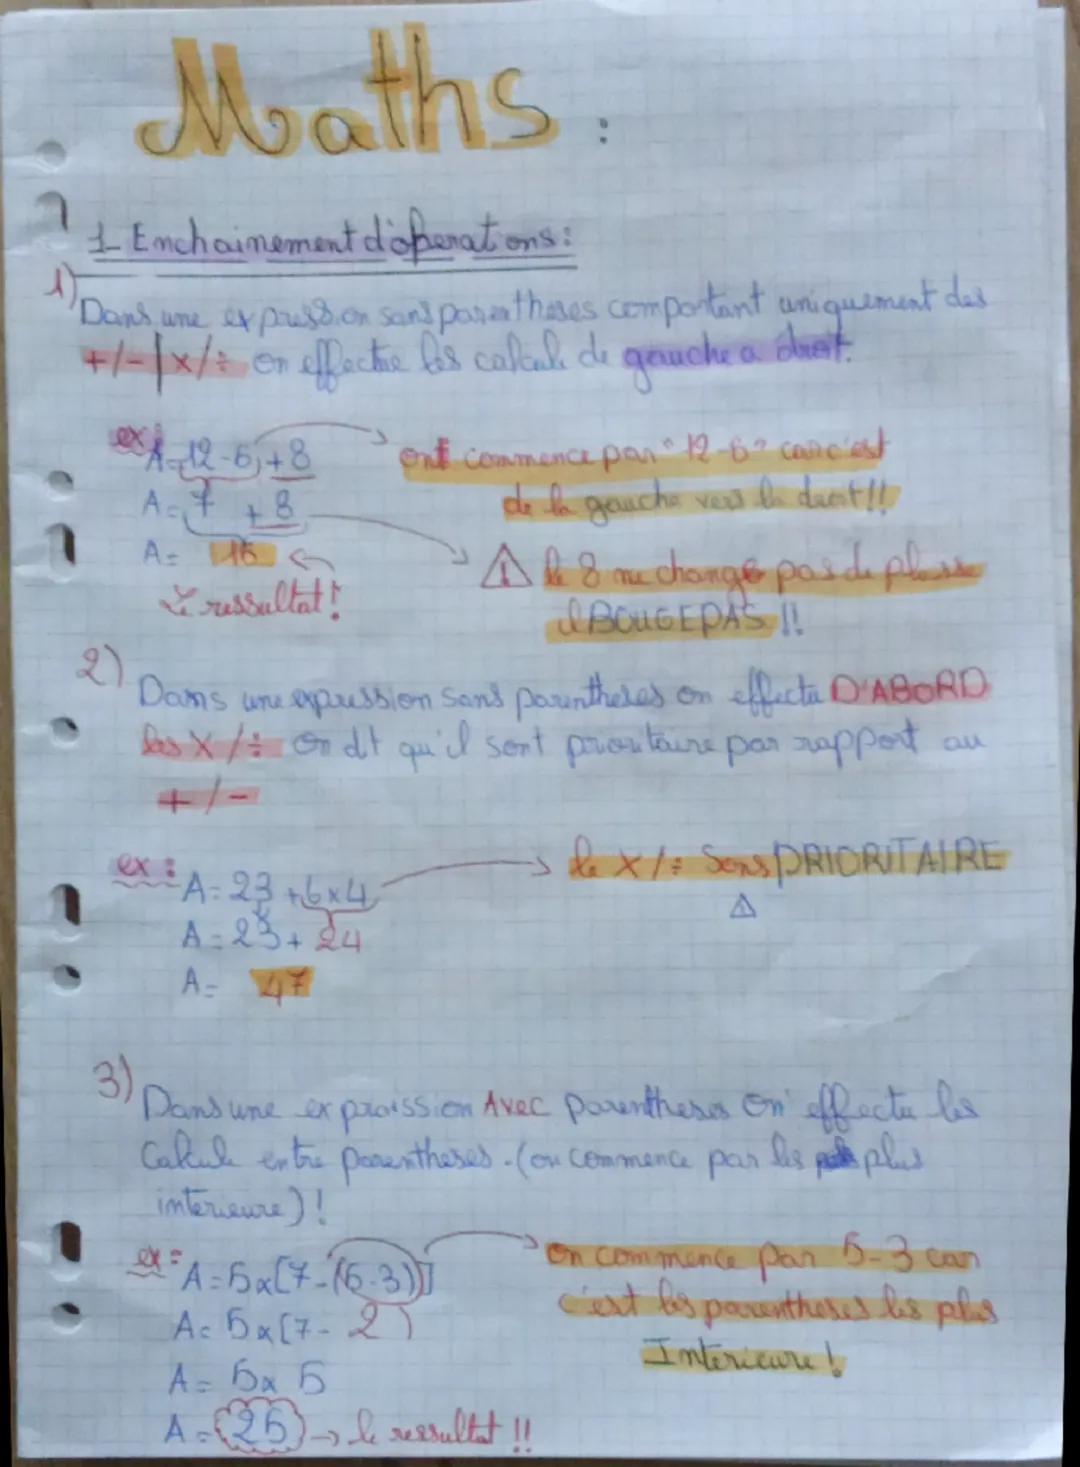 Maths :
1- Enchainement d'operations :
1) Dans une expression sans parentheses comportant uniquement des
+/- | x/÷ on effectue les calcule de gauche a droit.
ex : A = 12-5 + 8 → ont commence par "12-5" car c'est
de la gauche vers la droit !!
A = 7 + 8 → ⚠ le 8 ne change pas de place
il BOUGE PAS !!
A = 15 ←
Le ressultat !
2) Dans une expression sans parentheses on effectu D'ABORD
les X /÷ on dt qu'il sont prioritaire par rapport au
+ /-
ex : A = 23 + 6 x 4 → le X /÷ Sons PRIORITAIRE
A = 23 + 24
A = 47
3) Dans une expression Avec parentheses on effectu les
Calcule entre parentheses. (on commence par les plus
interieure) !
ex : A = 5 x [7 - (5-3)] → on commence par 5-3 car
c'est les parentheses les plus
Interieure !
A = 5 x [7 - 2)
A = 5 x 5
A = 25 → le ressultat !!